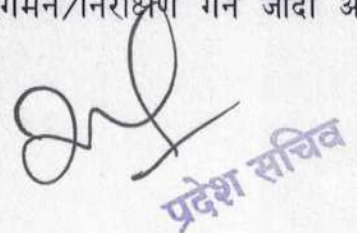 गमन/निरीक्षण गर्न जाँदा अ
प्रदेश सचिव